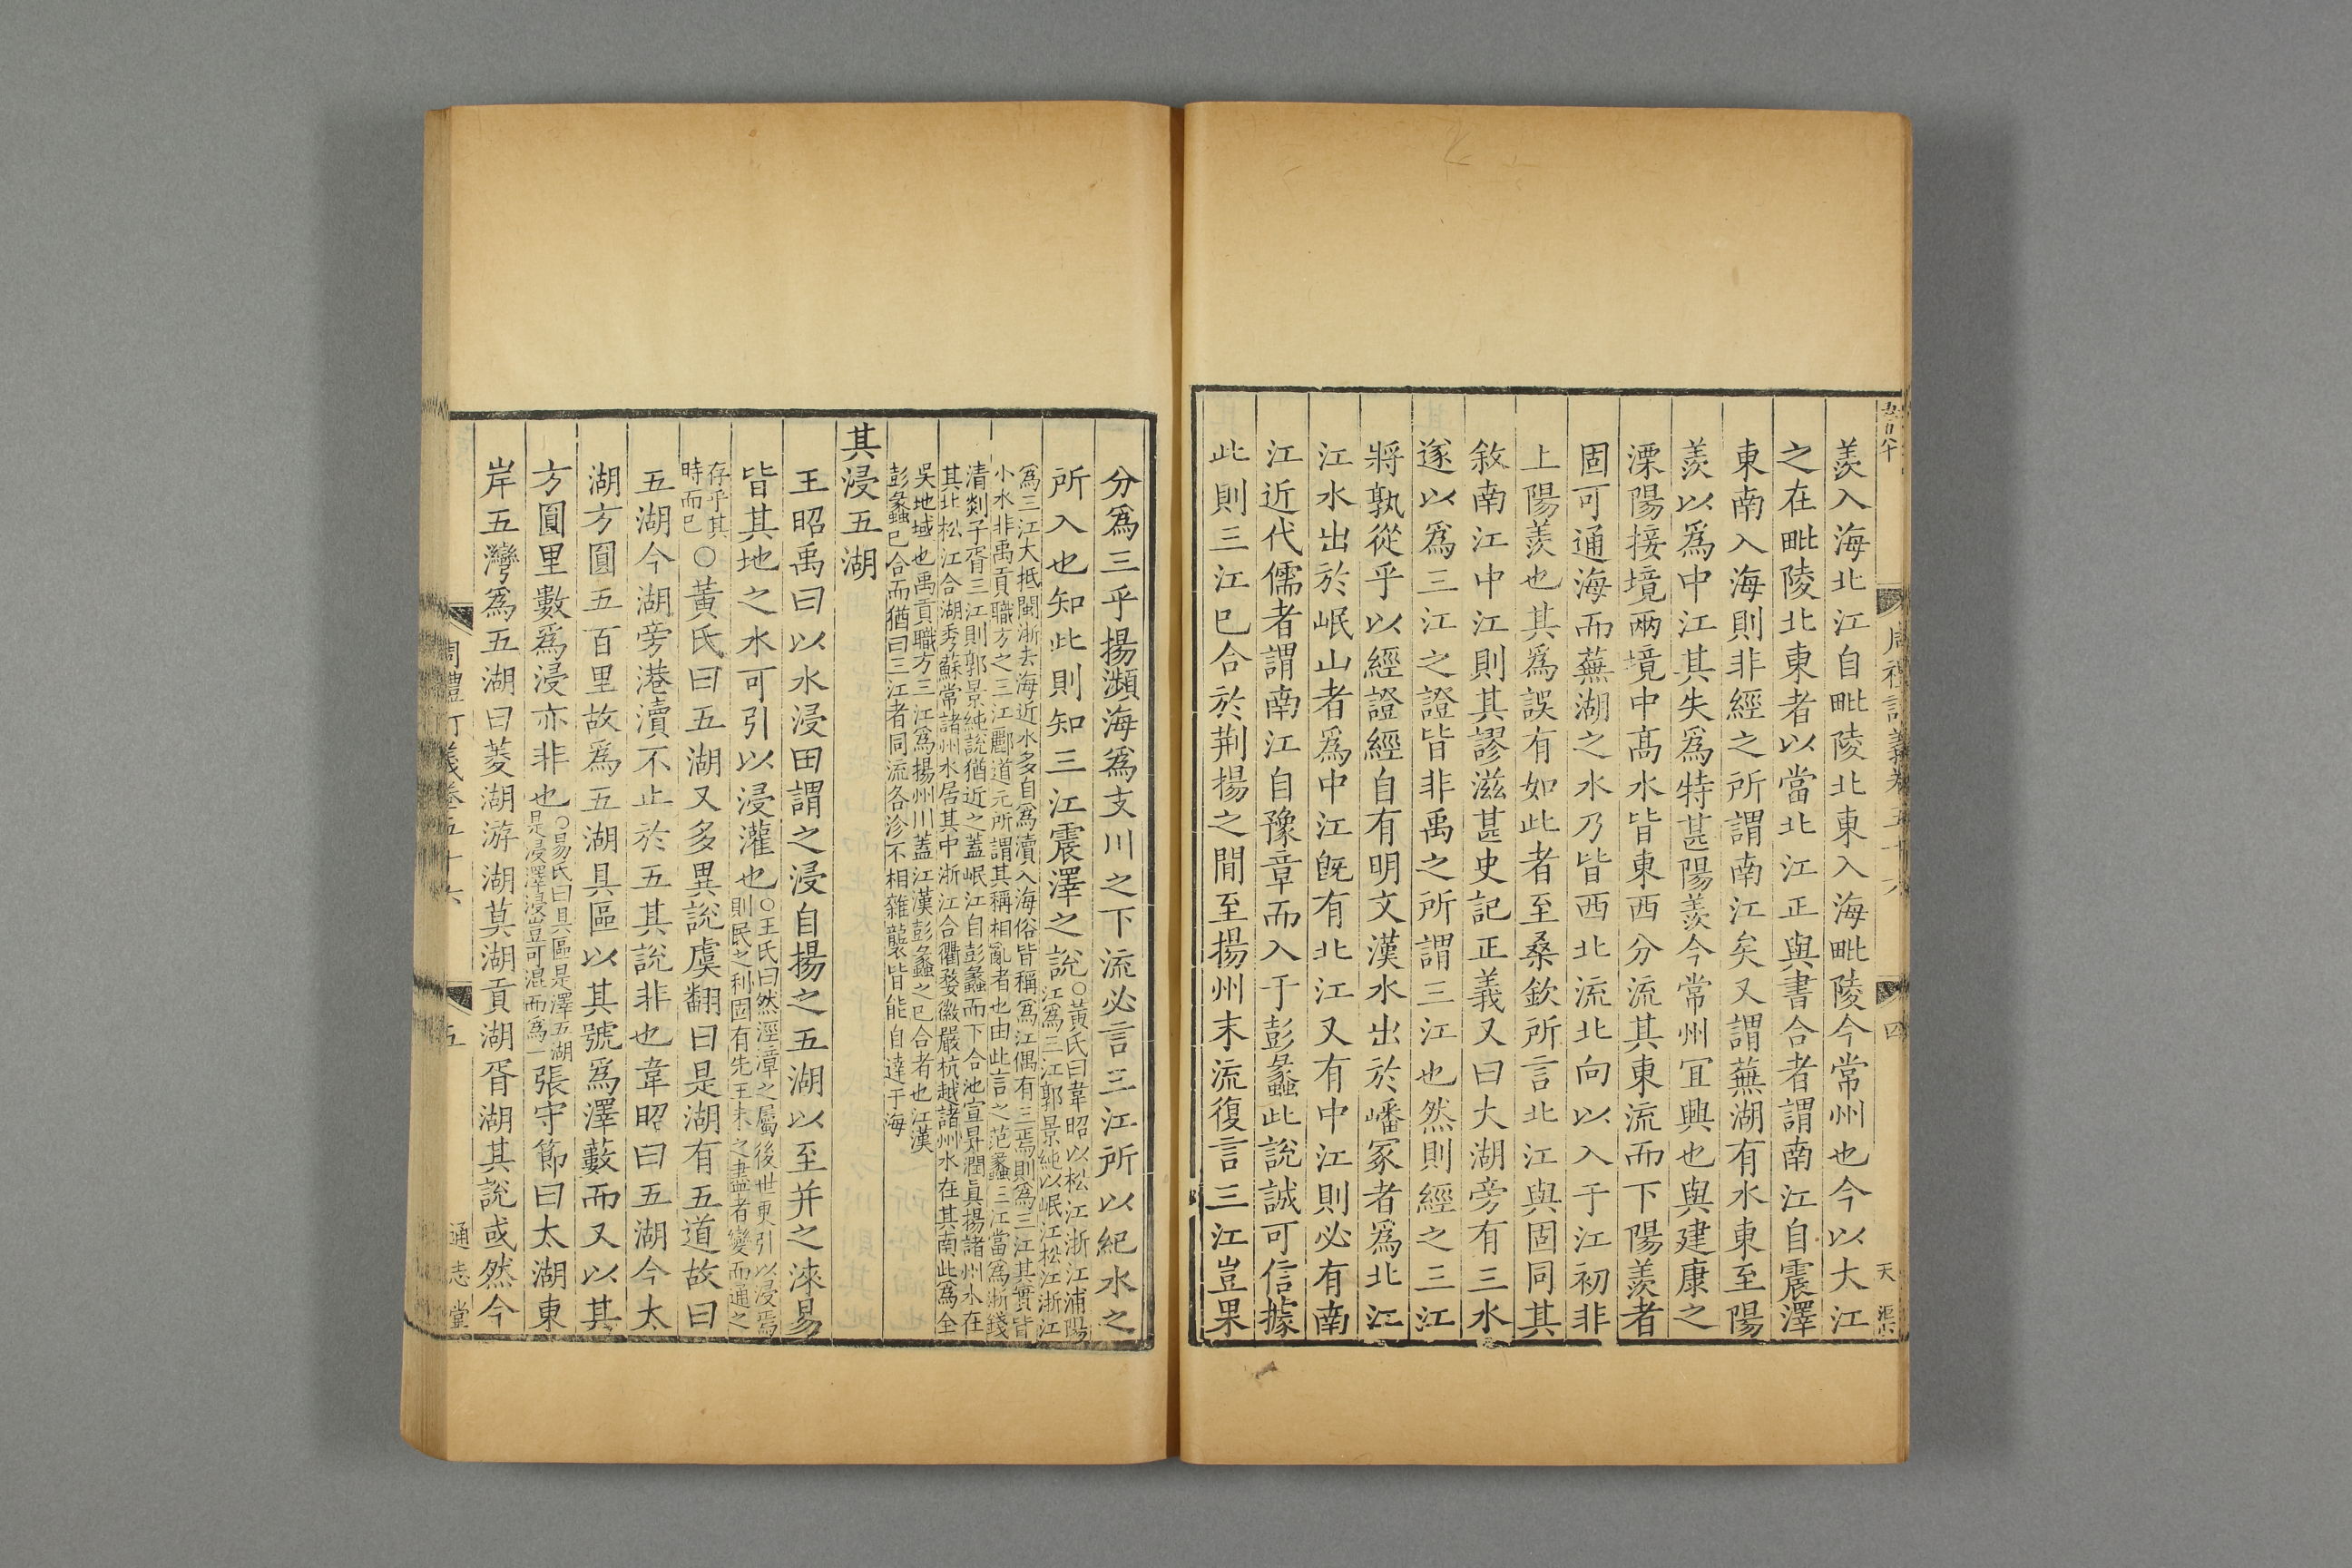 羨入海北江自毗陵北東入海毗陵今常州也今以大江
之在毗陵北東者以當北江正與書合者謂南江自震澤
東南入海則非經之所謂南江矣又謂蕪湖有水東至陽
羨以爲中江其失爲特甚陽羨今常州宜興也與建康之
溧陽接境兩境中高水皆東西分流其東流而下陽羨者
固可通海而蕪湖之水乃皆西北流北向以入于江初非
上陽羨也其爲誤有如此者至桑欽所言北江與固同其
敘南江中江則其謬滋甚史記正義又曰大湖旁有三水
遂以爲三江之證皆非禹之所謂三江也然則經之三江
將孰從乎以經證經自有明文漢水出於嶓冢者爲北江
江水出於岷山者爲中江旣有北江又有中江則必有南
江近代儒者謂南江自豫章而入于彭蠡此說誠可信據
此則三江已合於荆揚之間至揚州末流復言三江豈果
分爲三乎揚瀕海爲支川之下流必言三江所以紀水之
所入也知此則知三江震澤之說○黃氏曰韋昭以松江浙江浦陽
江爲三江郭景純以岷江松江浙江
爲三江大抵閩浙去海近水多自爲瀆入海俗皆稱爲江偶有三焉則爲三江其實皆
小水非禹貢職方之三江酈道元所謂其稱相亂者也由此言之范蠡三江當爲浙錢
清剡子胥三江則郭景純說猶近之蓋岷江自彭蠡而下合池宣昇潤眞揚諸州水在
其北松江合湖秀蘇常諸州水居其中浙江合衢婺徽嚴杭越諸州水在其南此爲全
吳地域也禹貢職方三江爲揚州川蓋江漢彭蠡之已合者也江漢
彭蠡已合而猶曰三江者同流各沴不相雜襲皆能自達于海
其浸五湖
王昭禹曰以水浸田謂之浸自揚之五湖以至并之淶易
皆其地之水可引以浸灌也○王氏曰然涇漳之屬後世更引以浸焉
則民之利固有先王未之盡者變而通之
存乎其
時而已○黃氏曰五湖又多異說虞翻曰是湖有五道故曰
五湖今湖旁港瀆不止於五其說非也韋昭曰五湖今太
湖方圓五百里故爲五湖具區以其號爲澤藪而又以其
方圓里數爲浸亦非也○易氏曰具區是澤五湖
是浸澤浸豈可混而爲一張守節曰太湖東
岸五灣爲五湖曰菱湖游湖莫湖貢湖胥湖其說或然今
周禮訂義卷五十六
五
通志堂